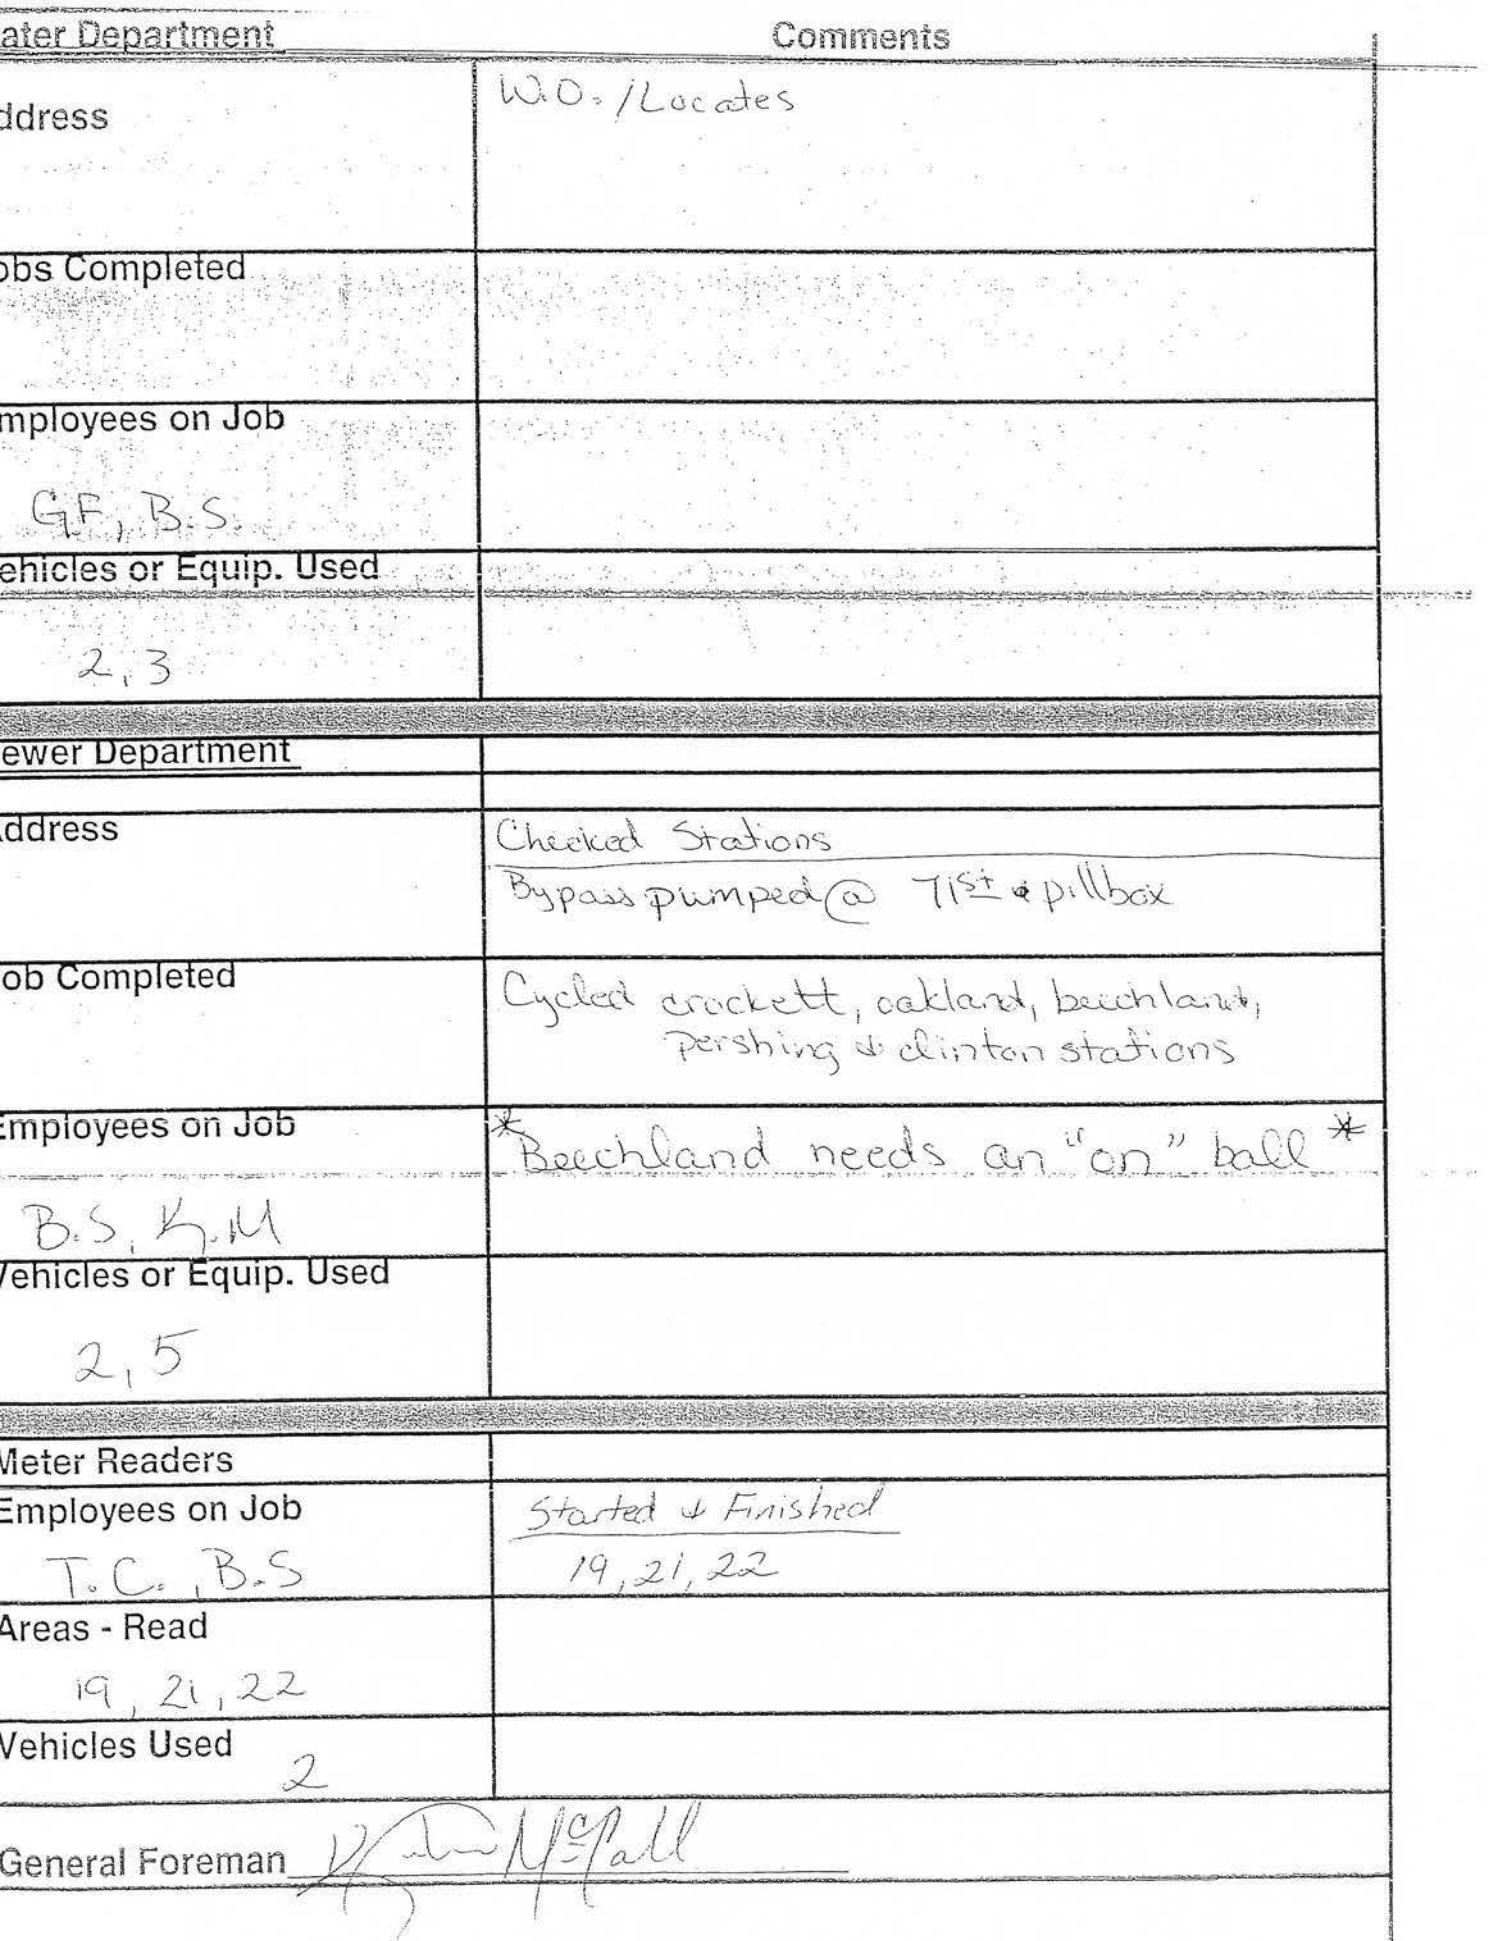 ater Department Comments
ddress W.O. / Locates
obs Completed
mployees on Job
G.F, B.S.
ehicles or Equip. Used
2, 3
ewer Department
ddress Checked Stations
Bypass pumped @ 71st & pillbox
ob Completed Cycled crockett, oakland, beechland,
pershing & clinton stations
Employees on Job *Beechland needs an "on" ball *
B.S, K.M
Vehicles or Equip. Used
2, 5
Meter Readers
Employees on Job Started & Finished
T.C., B.S 19, 21, 22
Areas - Read
19, 21, 22
Vehicles Used
2
General Foreman McCall